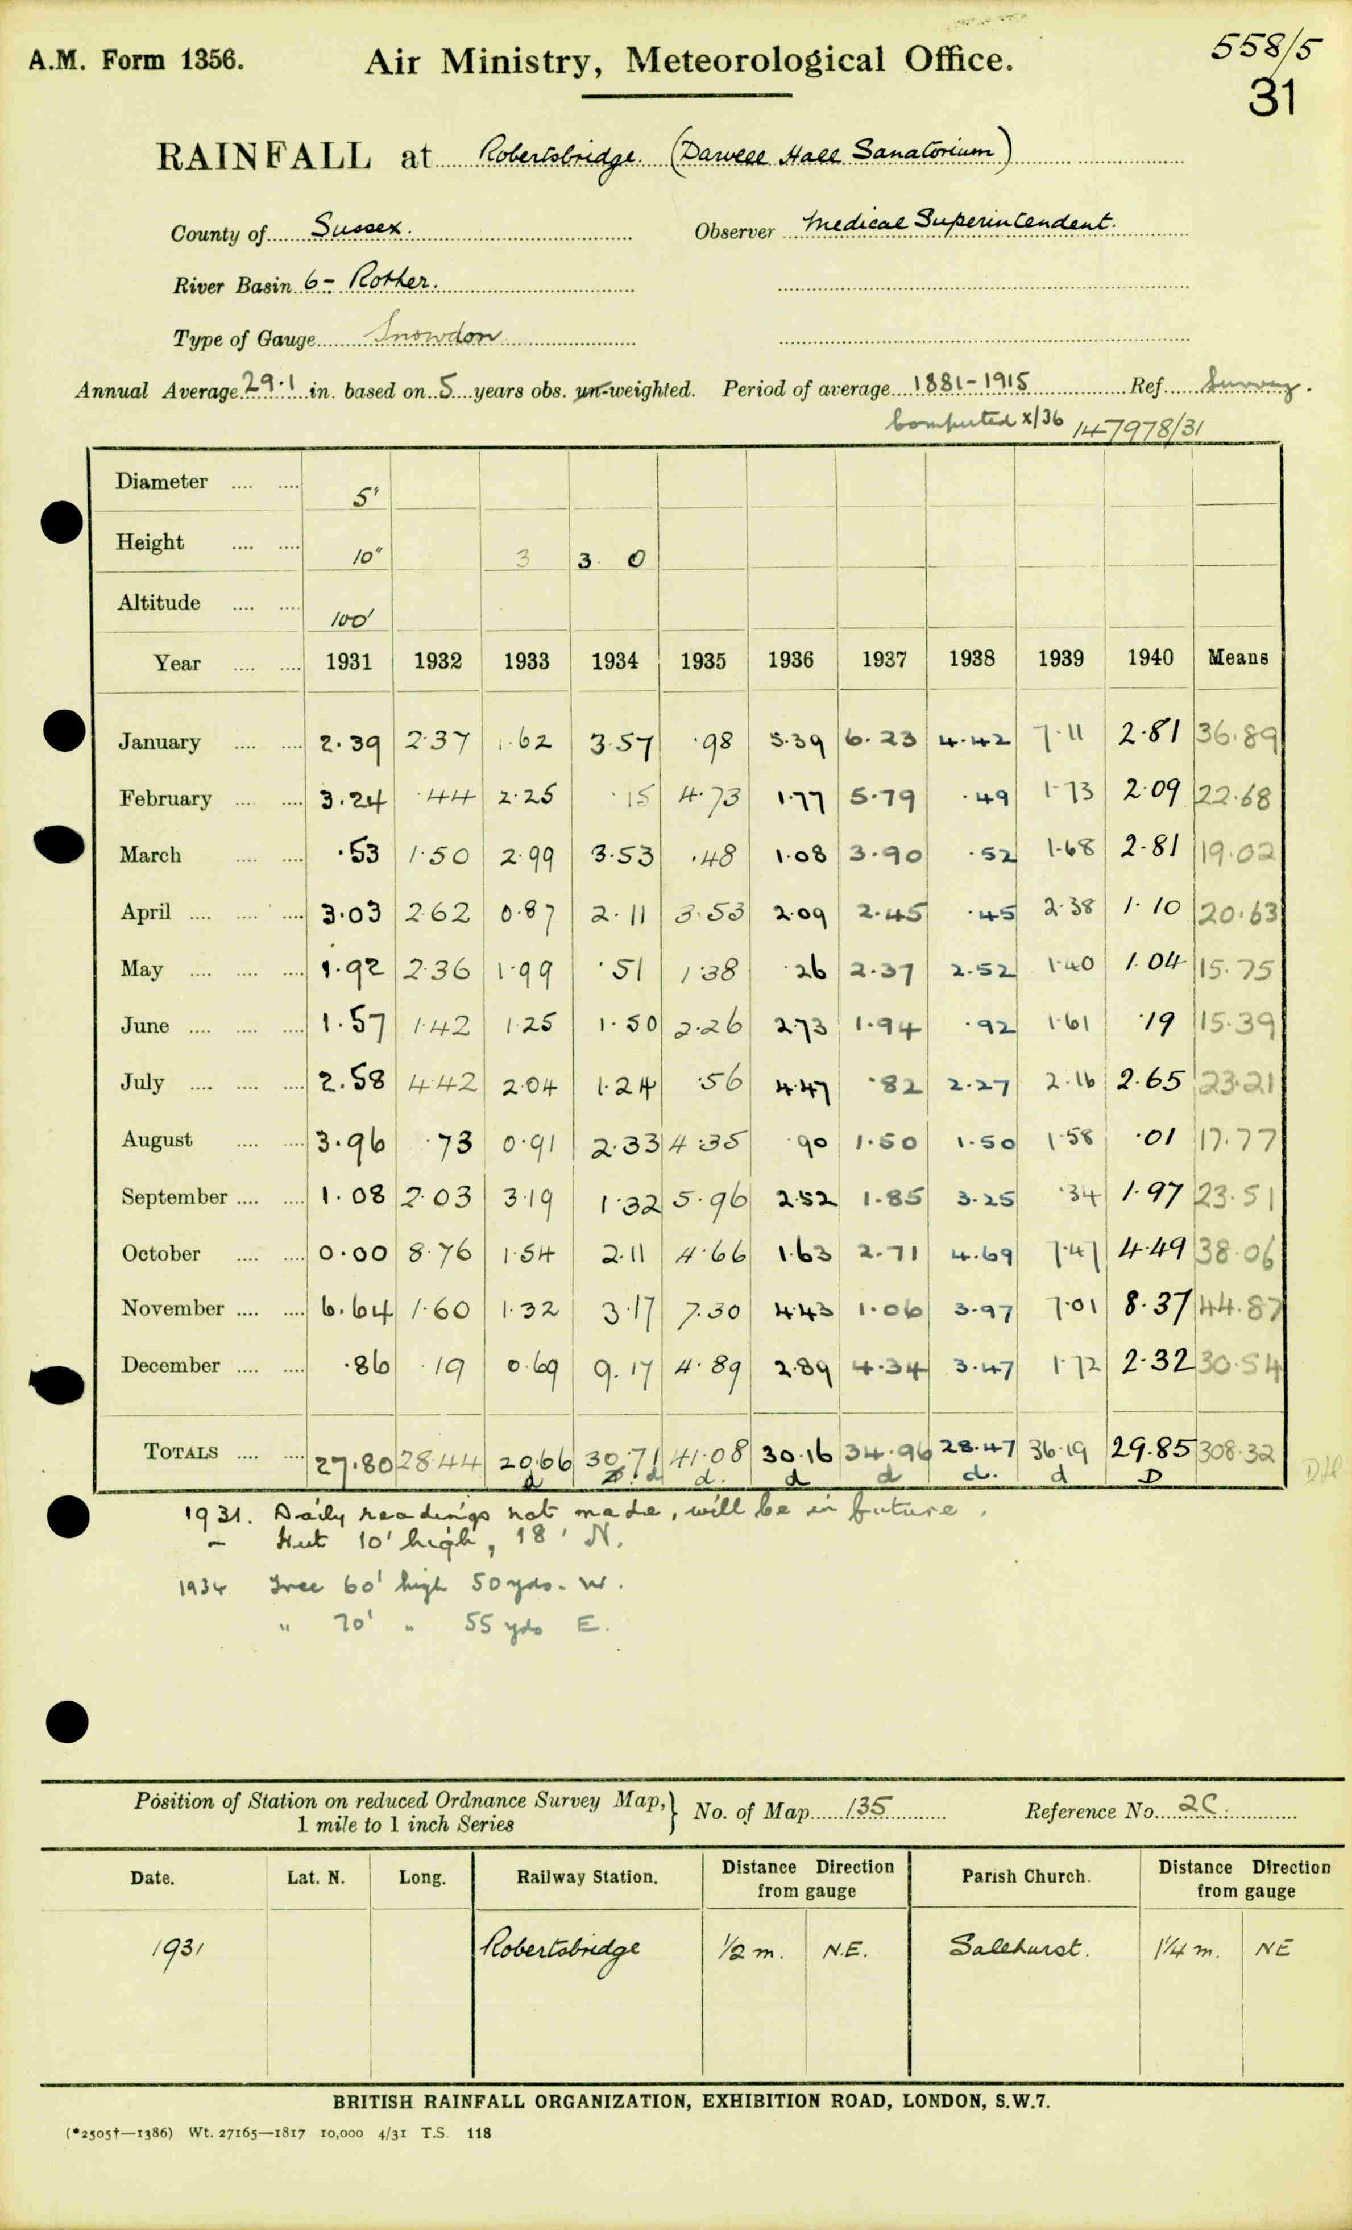 558/5
A.M. Form 1356. Air Ministry, Meteorological Office.
31
RAINFALL at Robertsbridge. (Darwell Hall Sanatorium)
County of Sussex. Observer Medical Superintendent.
River Basin 6- Rother.
Type of Gauge Snowdon
Annual Average 29.1 in. based on 5 years obs. un-weighted. Period of average 1881-1915 Ref. Survey.
Computed x/36 147978/31
Diameter .... .... 5"
Height .... .... 10" 3 3 0
Altitude .... .... 100'
Year .... .... 1931 1932 1933 1934 1935 1936 1937 1938 1939 1940 Means
January .... .... 2.39 2.37 1.62 3.57 .98 5.39 6.23 4.42 7.11 2.81 36.89
February .... .... 3.24 .44 2.25 .15 4.73 1.77 5.79 .49 1.73 2.09 22.68
March .... .... .53 1.50 2.99 3.53 .48 1.08 3.90 .52 1.68 2.81 19.02
April .... .... .... 3.03 2.62 0.87 2.11 3.53 2.09 2.45 .45 2.38 1.10 20.63
May .... .... .... 1.92 2.36 1.99 .51 1.38 .26 2.37 2.52 1.40 1.04 15.75
June .... .... .... 1.57 1.42 1.25 1.50 2.26 2.73 1.94 .92 1.61 .19 15.39
July .... .... .... 2.58 4.42 2.04 1.24 .56 4.47 .82 2.27 2.16 2.65 23.21
August .... .... 3.96 .73 0.91 2.33 4.35 .90 1.50 1.50 1.58 .01 17.77
September .... .... 1.08 2.03 3.19 1.32 5.96 2.52 1.85 3.25 .34 1.97 23.51
October .... .... 0.00 8.76 1.54 2.11 4.66 1.63 2.71 4.69 7.47 4.49 38.06
November .... .... 6.64 1.60 1.32 3.17 7.30 4.43 1.06 3.97 7.01 8.37 44.87
December .... .... .86 .19 0.69 9.17 4.89 2.89 4.34 3.47 1.72 2.32 30.54
TOTALS .... .... 27.80 28.44 20.66 30.71 41.08 30.16 34.96 28.47 36.19 29.85 308.32
d d d. d d d. d D
1931. Daily readings not made, will be in future.
– Hut 10' high, 18' N.
1934 Tree 60' high 50 yds. W.
" 70' " 55 yds E.
Position of Station on reduced Ordnance Survey Map,} No. of Map 135 Reference No. 2C.
1 mile to 1 inch Series
Date. Lat. N. Long. Railway Station. Distance Direction from gauge Parish Church. Distance Direction from gauge
1931 Robertsbridge 1/2 m. N.E. Salehurst. 1 1/4 m. NE
BRITISH RAINFALL ORGANIZATION, EXHIBITION ROAD, LONDON, S.W.7.
(*2505†—1386) Wt. 27165—1817 10,000 4/31 T.S. 118